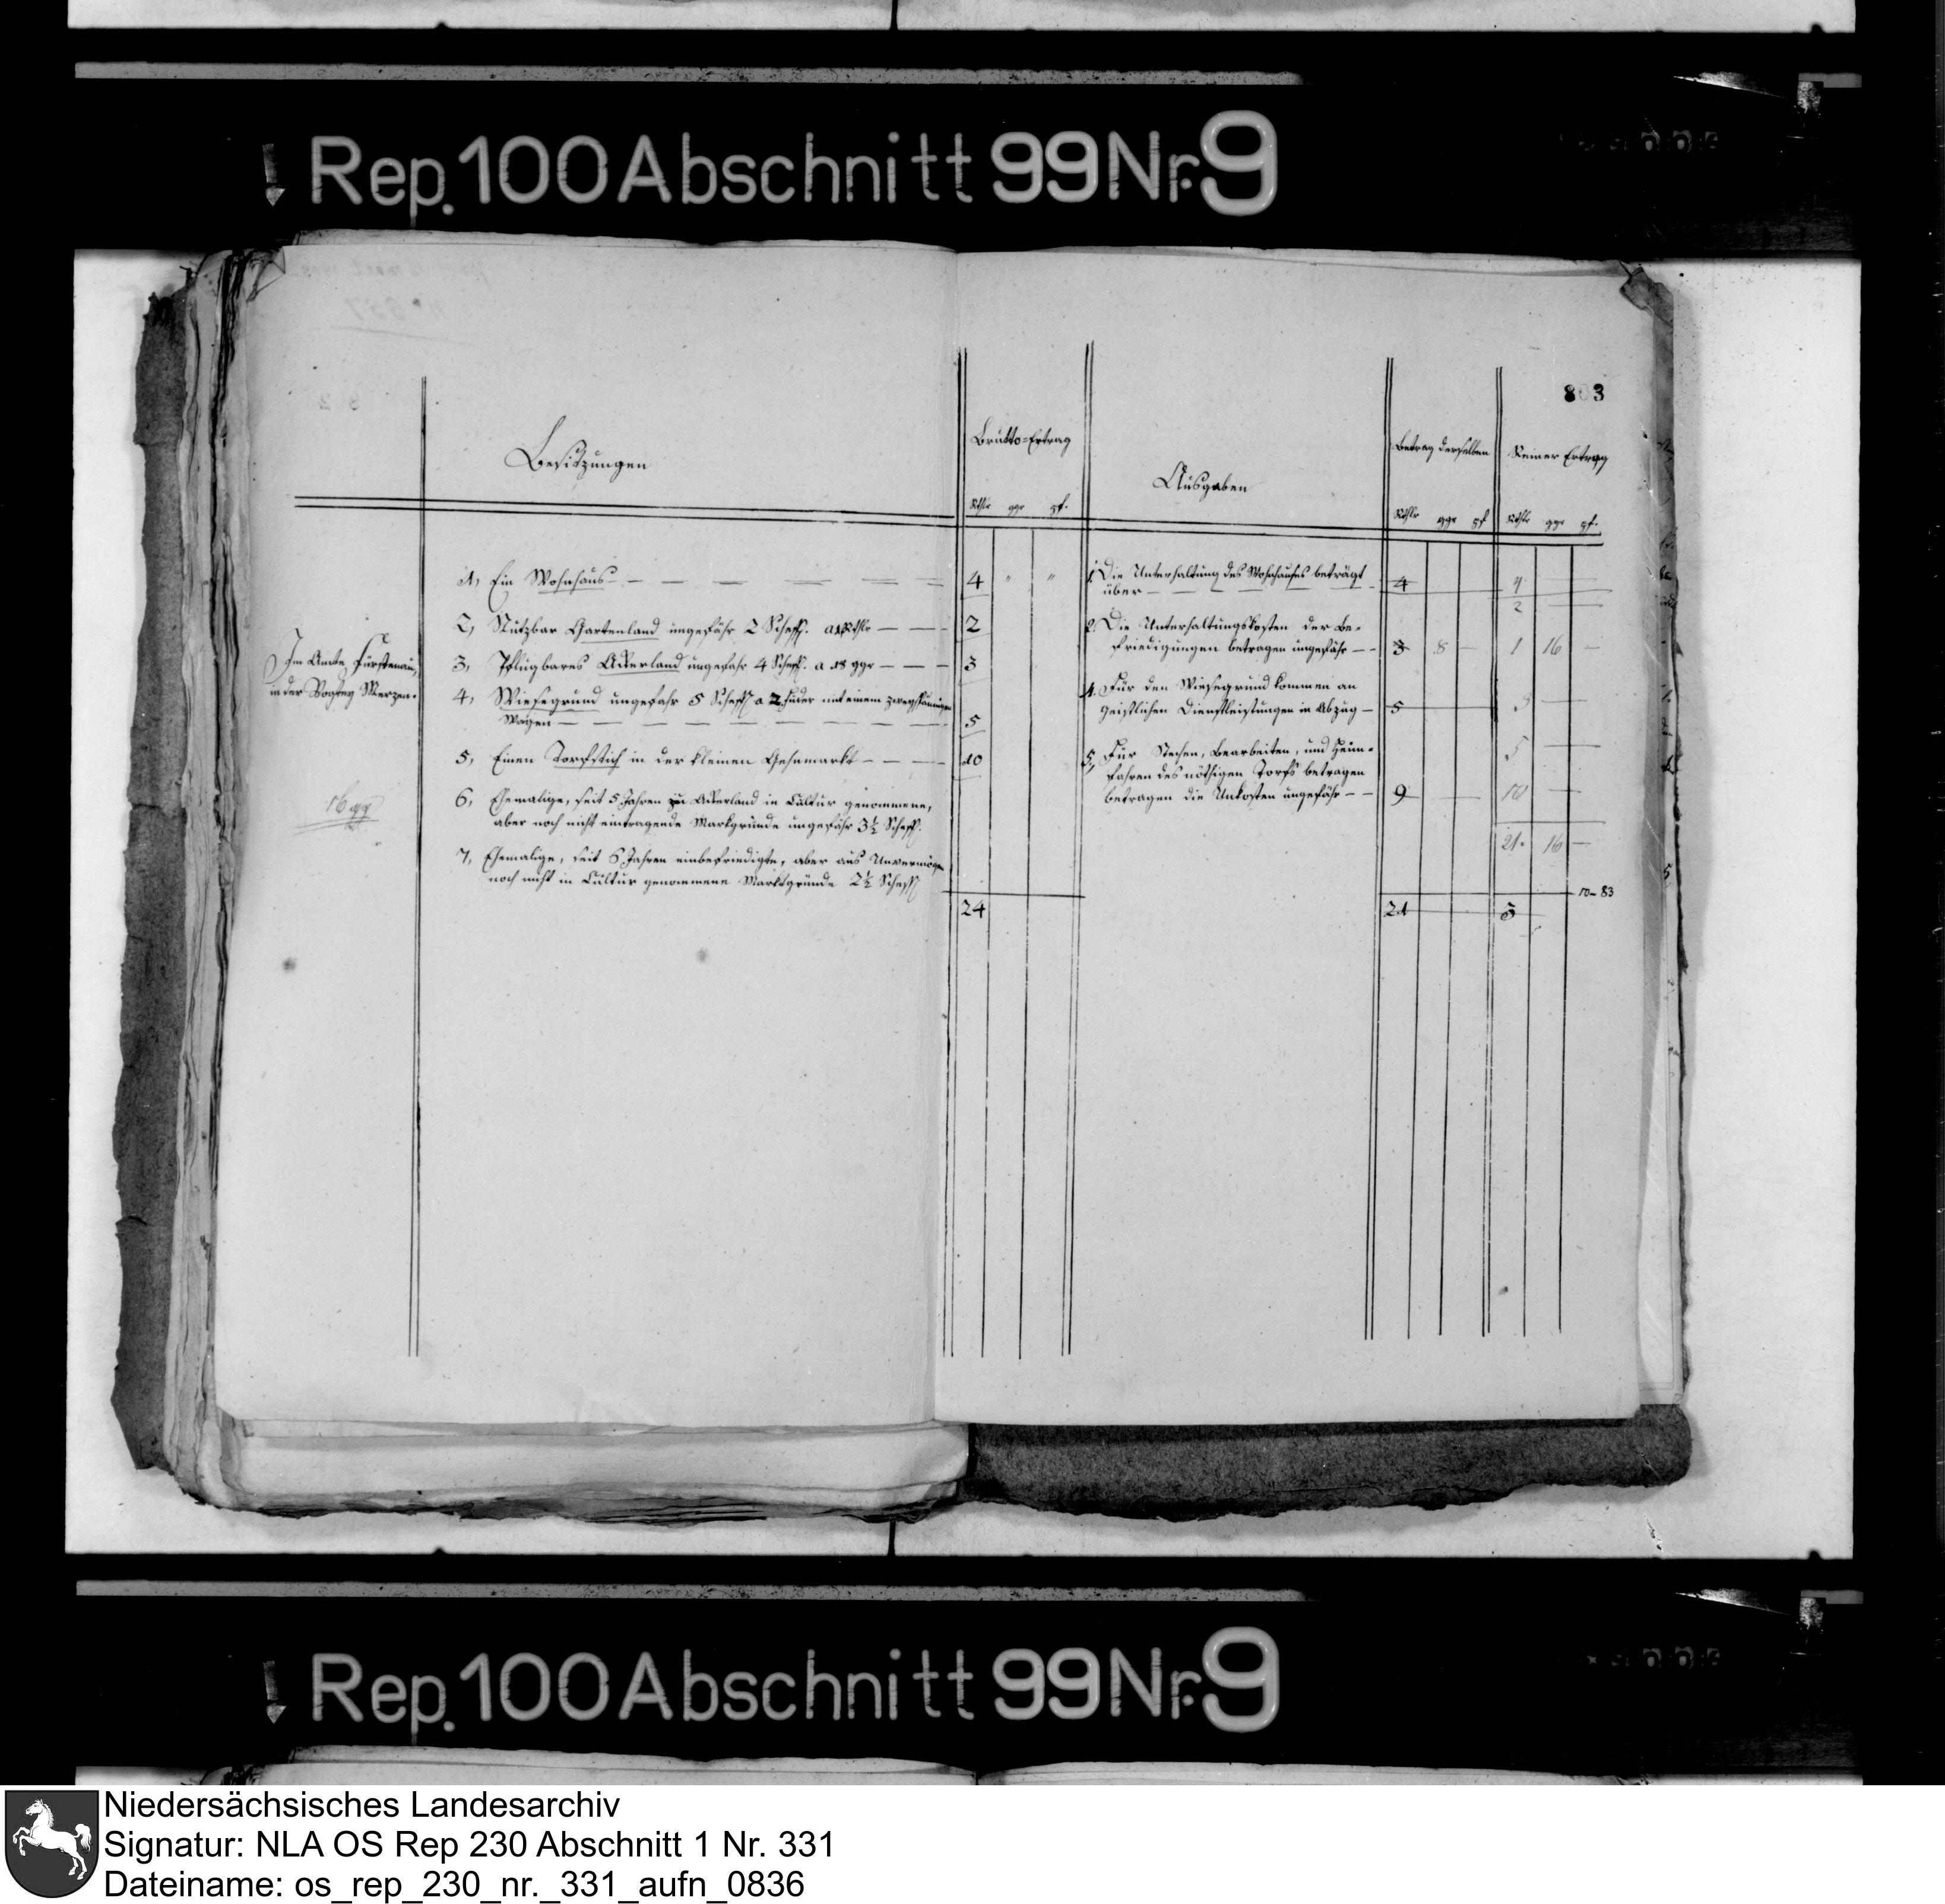 Rep. 100 Abschnitt 99 Nr. 9
803
Besitzungen
Brutto=Ertrag
Rthlr ggr pf.
Ausgaben
Betrag derselben
Rthlr ggr pf
Reiner Ertrag
Rthlr ggr pf.
Im Amte Fürstenau,
in der Vogtey Merzen.
16 gg
1, Ein Wohnhaus — — — — — — 4 " "
2, Nutzbar Gartenland ungefähr 2 Scheff. a 1 Rthlr — — — 2
3, Pflugbares Ackerland ungefähr 4 Scheff. a 18 ggr — — — 3
4, Wiesegrund ungefähr 5 Scheff. a 2 Fuder mit einem zweyspännigen
Wagen — — — — — — 5
5, Einen Torfstich in der kleinen Gehnmarkt — — — 10
6, Ehemalige, seit 5 Jahren zu Ackerland in Cultur genommene,
aber noch nicht eintragende Markgründe ungefähr 3½ Scheff.
7, Ehemalige, seit 6 Jahren einbefriedigte, aber aus Unvermögen
noch nicht in Cultur genommene Marktgründe 2½ Scheff.
24
1. Die Unterhaltung des Wohnhauses beträgt
über — — — — — 4
2. Die Unterhaltungskosten der Be-
friedigungen betragen ungefähr — — 3 8 —
4. Für den Wiesegrund kommen an
geistlichen Dienstleistungen in Abzug — 5
5, Für Stechen, Bearbeiten, und Heim-
fahren des nöthigen Torfs betragen
betragen die Unkosten ungefähr — — 9
21
4
2
1 16 —
3 —
5 —
10 —
21. 16 —
10-83
3
Rep. 100 Abschnitt 99 Nr. 9
Niedersächsisches Landesarchiv
Signatur: NLA OS Rep 230 Abschnitt 1 Nr. 331
Dateiname: os_rep_230_nr._331_aufn_0836